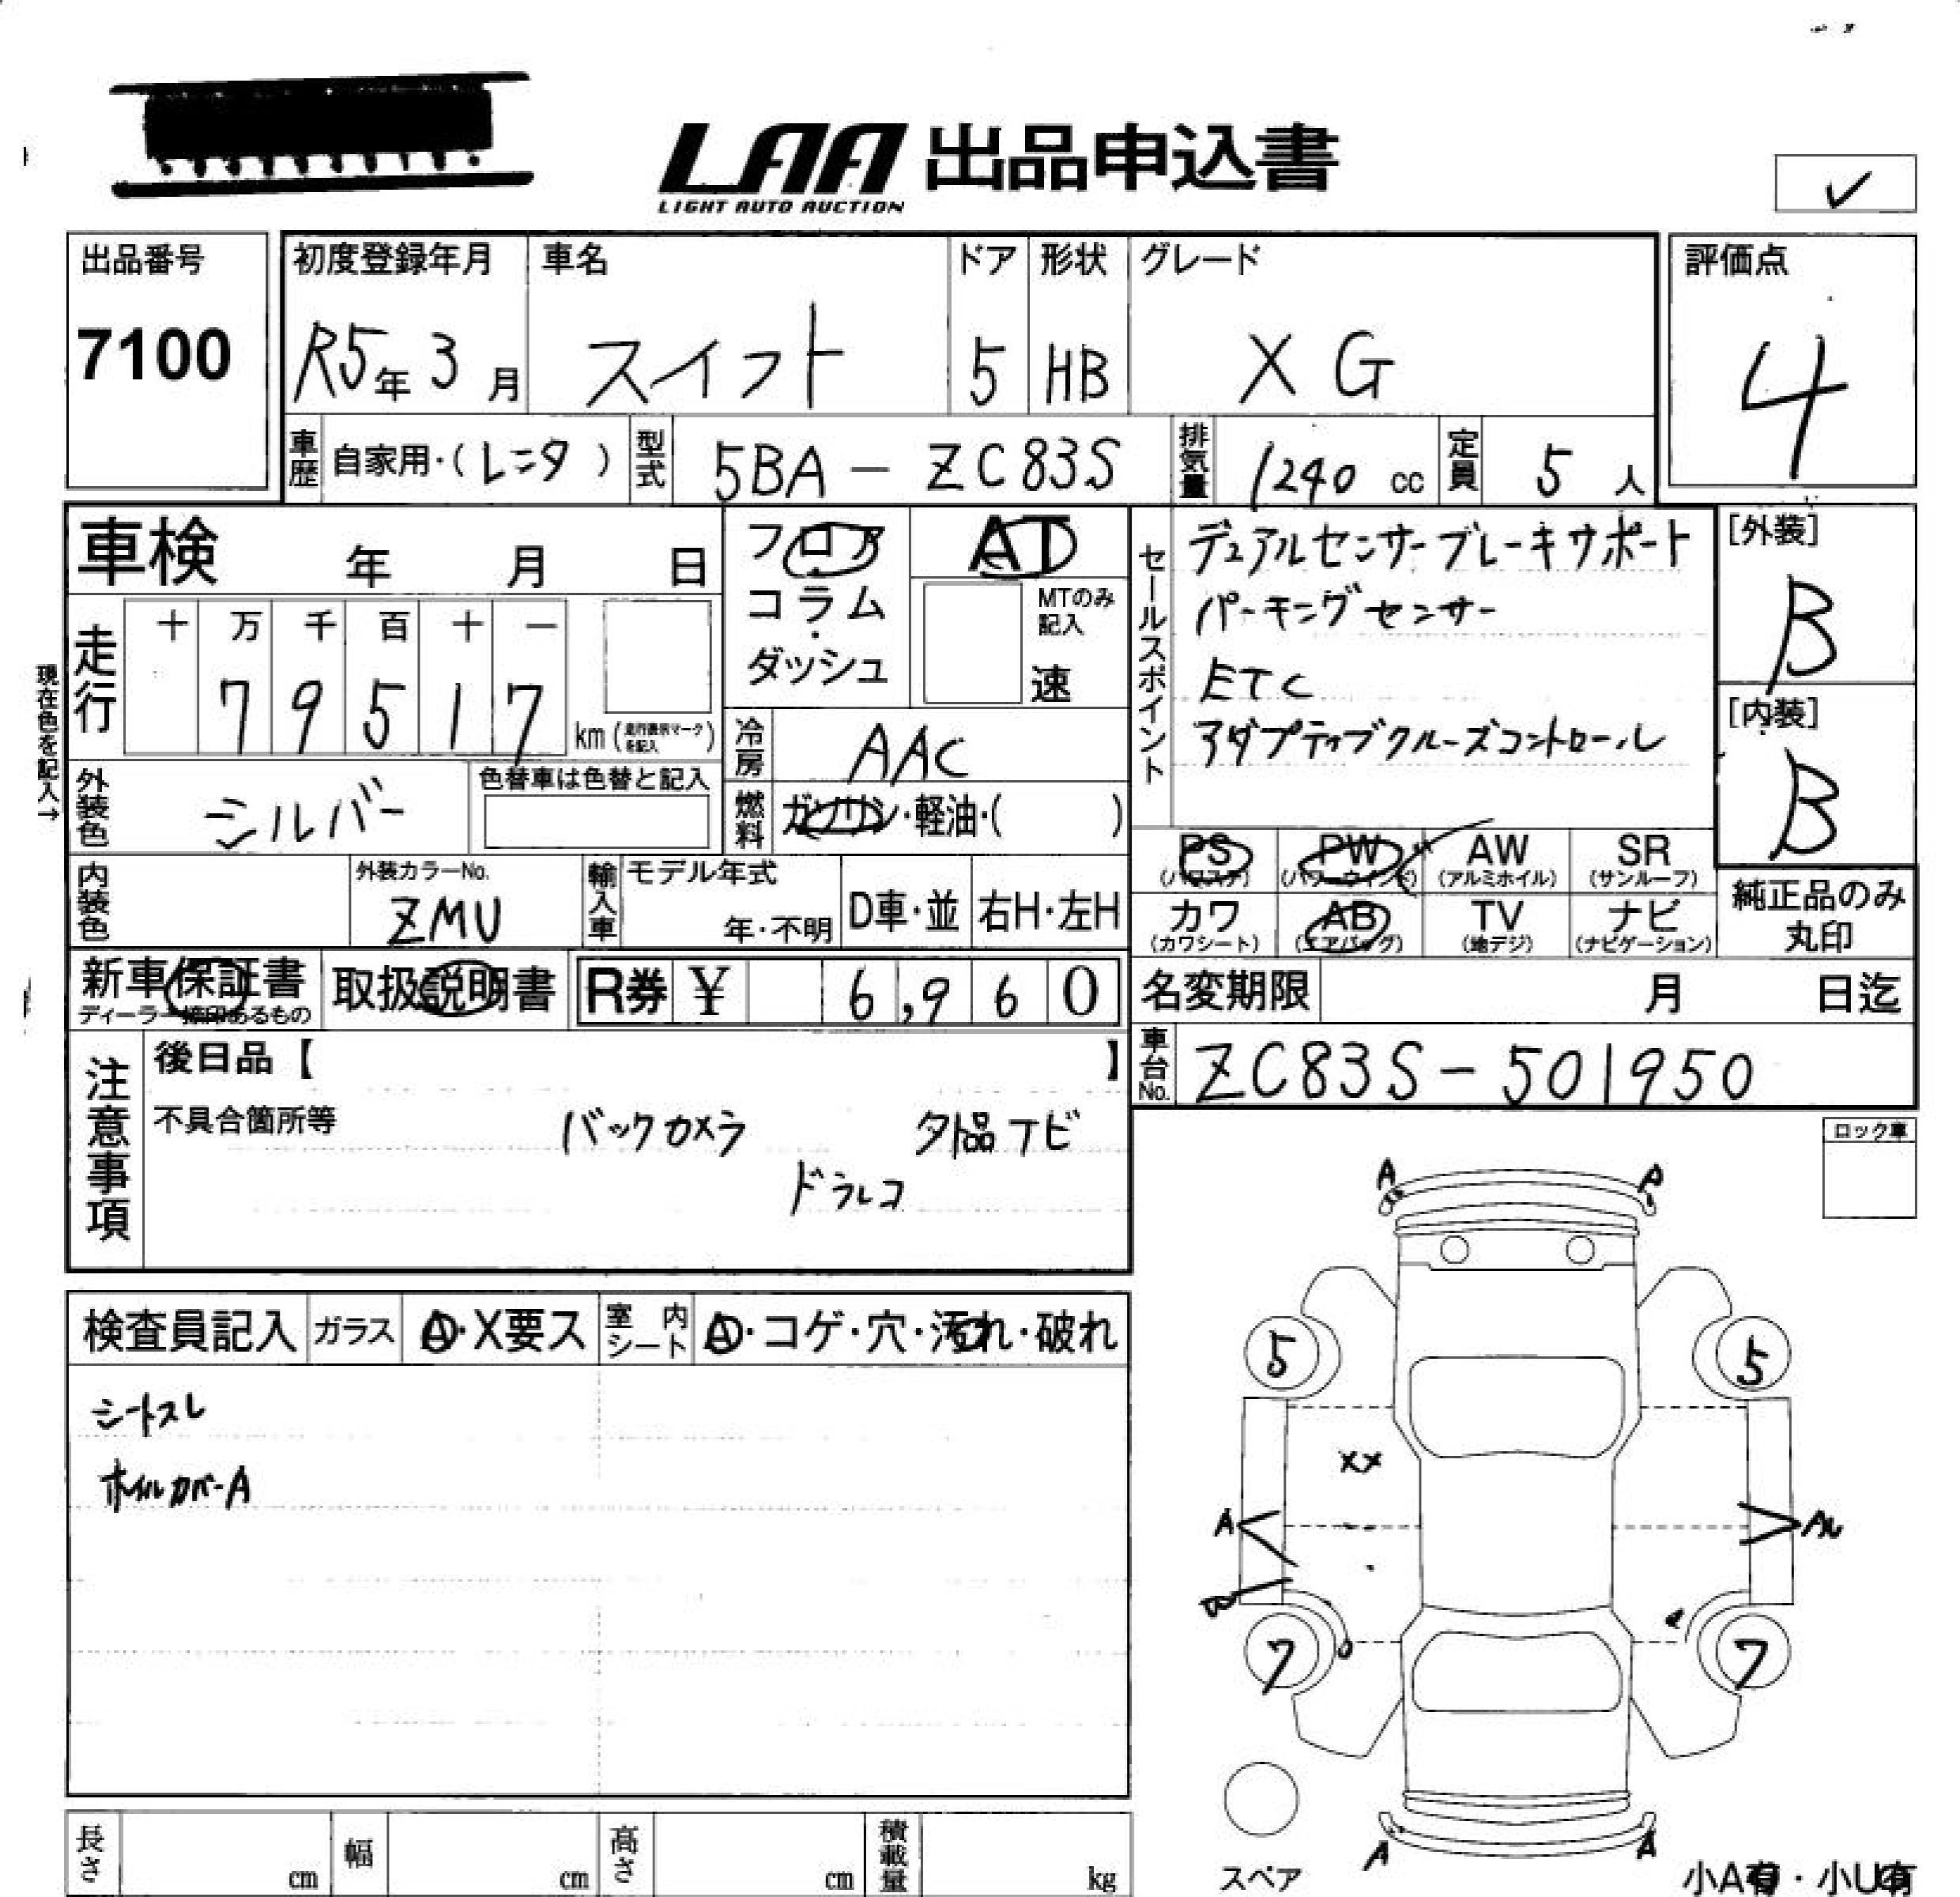 LAA 出品申込書
LIGHT AUTO AUCTION
✓
出品番号
7100
初度登録年月
R5年 3月
車名
スイフト
ドア
5
形状
HB
グレード
XG
評価点
4
車歴 自家用・(レンタ)
型式 5BA-ZC83S
排気量 1240 cc
定員 5人
車検 年 月 日
走行 十 万 千 百 十 一
7 9 5 1 7 km
現在色を記入→
フロア
コラム
・
ダッシュ
AT
MTのみ
記入
速
セールスポイント
デュアルセンサーブレーキサポート
パーキングセンサー
ETC
アダプティブクルーズコントロール
[外装]
B
[内装]
B
外装色 シルバー
色替車は色替と記入
冷房 AAC
燃料 ガソリン・軽油・( )
内装色
外装カラーNo.
ZMU
輸入車
モデル年式
年・不明
D車・並
右H・左H
PS PW AW SR
(パワステ) (パワーウインド) (アルミホイル) (サンルーフ)
カワ AB TV ナビ
(カワシート) (エアバッグ) (地デジ) (ナビゲーション)
純正品のみ
丸印
新車保証書
ディーラー捺印あるもの
取扱説明書
R券 ¥ 6,960
名変期限 月 日迄
車台No. ZC83S-501950
注意事項
後日品【 】
不具合箇所等
バックカメラ 外品ナビ
ドラレコ
ロック車
検査員記入 ガラス A・X要ス 室内シート A・コゲ・穴・汚れ・破れ
シートスレ
ホイルカバーA
A
5 5
XX
A
7 7
A A
スペア
長さ cm 幅 cm 高さ cm 積載量 kg
小A有・小U有